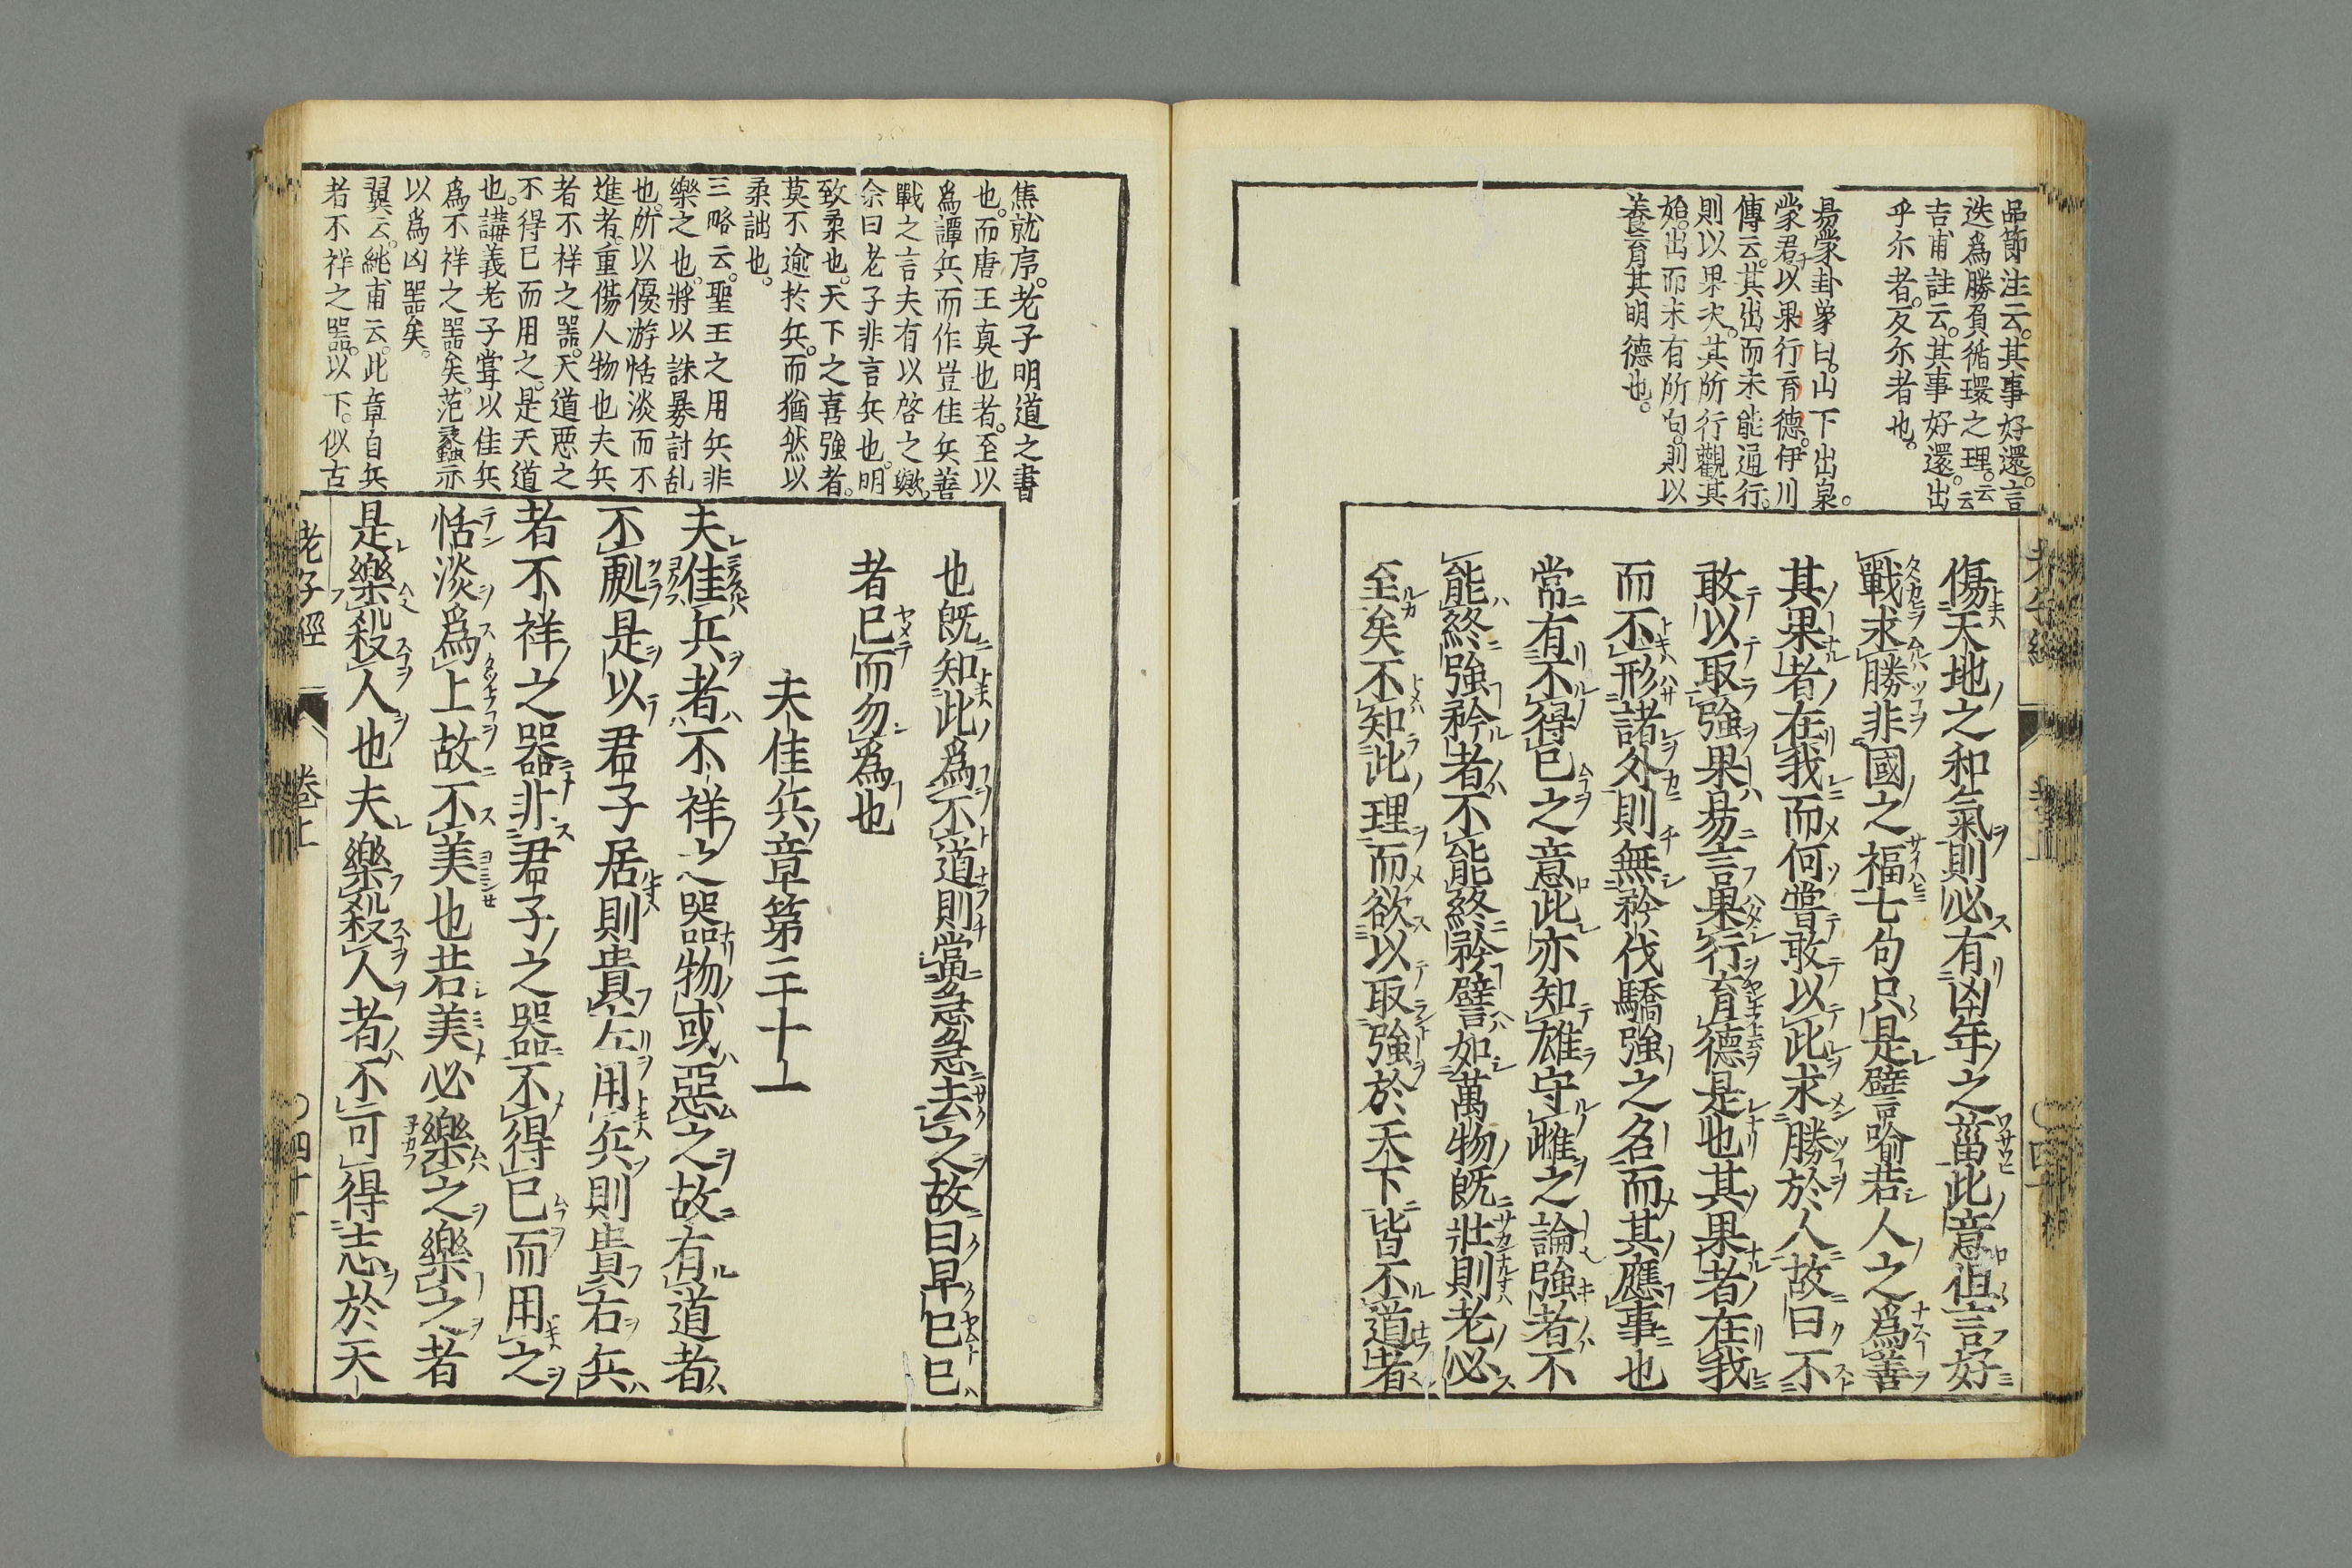 品節注云。其事好還。言
迭爲勝負循環之理。云云
吉甫註云。其事好還。出
乎尓者。反尓者也。
易蒙卦象曰。山下出泉。
蒙君子以果行育德。伊川
傳云。其出而未能通行。
則以果决。其所行觀其
始。出而未有所向。則以
養育其明德也。
傷天地之和氣則必有凶年之菑此意但言好
戰求勝非國之福七句只是譬喻若人之爲善
其果者在我而何嘗敢以此求勝於人故曰不
敢以取強果易言果行育德是也其果者在我
而不形諸外則無矜伐驕強之名而其應事也
常有不得已之意此亦知雄守雌之論強者不
能終強矜者不能終矜譬如萬物既壯則老必
至矣不知此理而欲以取強於天下皆不道者
焦就序。老子明道之書
也。而唐王真也者。至以
爲譚兵而作豈佳兵善
戰之言夫有以啓之歟。
余曰老子非言兵也。明
致柔也。天下之喜強者。
莫不逾於兵。而猶然以
柔詘也。
三略云。聖王之用兵非
樂之也。將以誅暴討乱
也。所以優游恬淡而不
進者。重傷人物也夫兵
者不祥之器。天道悪之
不得已而用之。是天道
也。講義老子嘗以佳兵
爲不祥之器矣。范蠡亦
以爲凶器矣。
翼云。純甫云。此章自兵
者不祥之器。以下。似古
也既知此爲不道則當急急去之故曰早已已
者已而勿爲也
夫佳兵章第三十一
夫佳兵者不祥之器物或惡之故有道者
不處是以君子居則貴左用兵則貴右兵
者不祥之器非君子之器不得已而用之
恬淡爲上故不美也若美必樂之樂之者
是樂殺人也夫樂殺人者不可得志於天
老子經　卷上　〇四十一